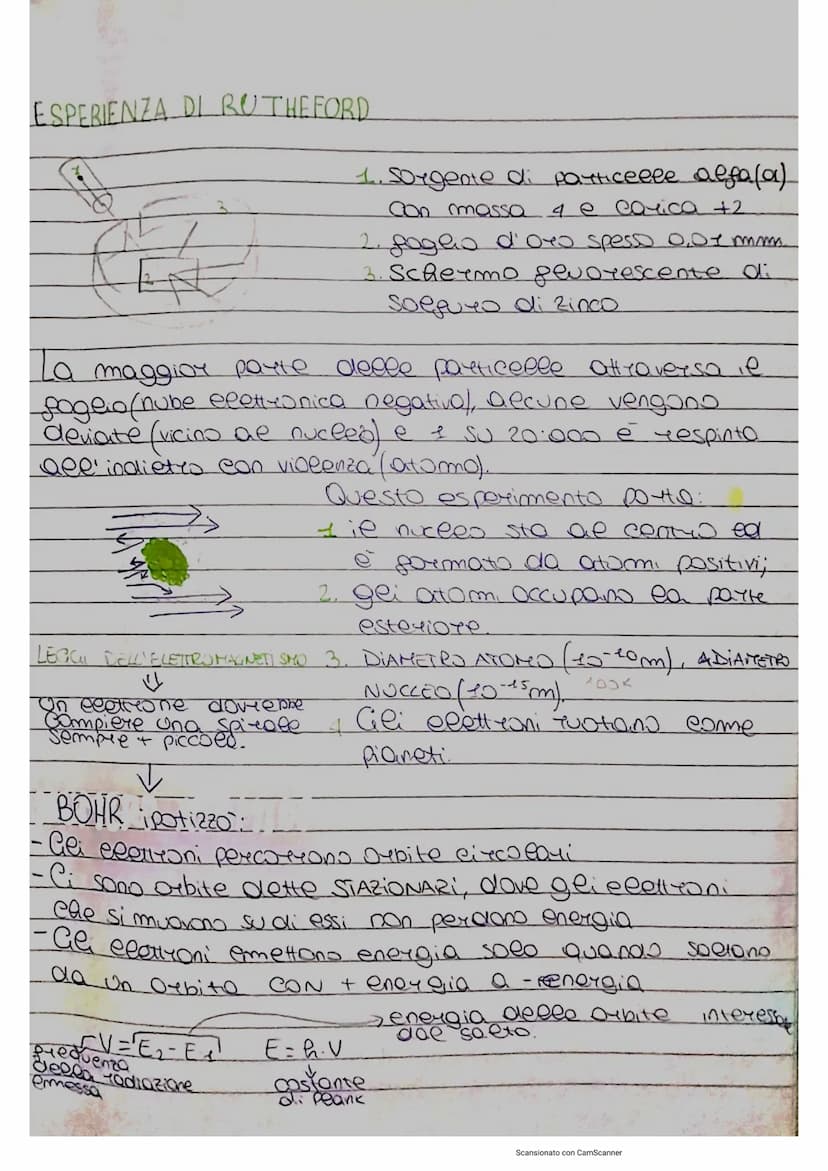 ESPERIENZA DI RUTHEFORD
1
3
2
1. Sorgente di particelle alfa (α)
con massa 4 e carica +2
2. foglio d'oro spesso 0,01 mm
3. Schermo fluorescente di
solfuro di zinco
La maggior parte delle particelle attraversa il
foglio (nube elettronica negativa), alcune vengono
deviate (vicino al nucleo) e 1 su 20.000 è respinto
all'indietro con violenza (atomo).
Questo esperimento porta:
1 il nucleo sta al centro ed
è formato da atomi positivi;
2. gli atomi occupano la parte
esteriore.
LEGGI DELL'ELETTROMAGNETISMO
3. DIAMETRO ATOMO (10⁻¹⁰m), DIAMETRO
NUCLEO (10⁻¹⁵m).
Un elettrone dovrebbe
compiere una spirale
sempre + piccolo.
4 Gli elettroni ruotano come
pianeti.
BOHR ipotizzò:
- Gli elettroni percorrono orbite circolari
- Ci sono orbite dette STAZIONARI, dove gli elettroni
che si muovono su di essi non perdono energia
- Gli elettroni emettono energia solo quando saltano
da un orbita CON + energia a - energia
energia delle orbite interessate
dal salto.
V = E₂ - E₁ E = h . V
frequenza
della radiazione
emessa
costante
di Plank
Scansionato con CamScanner